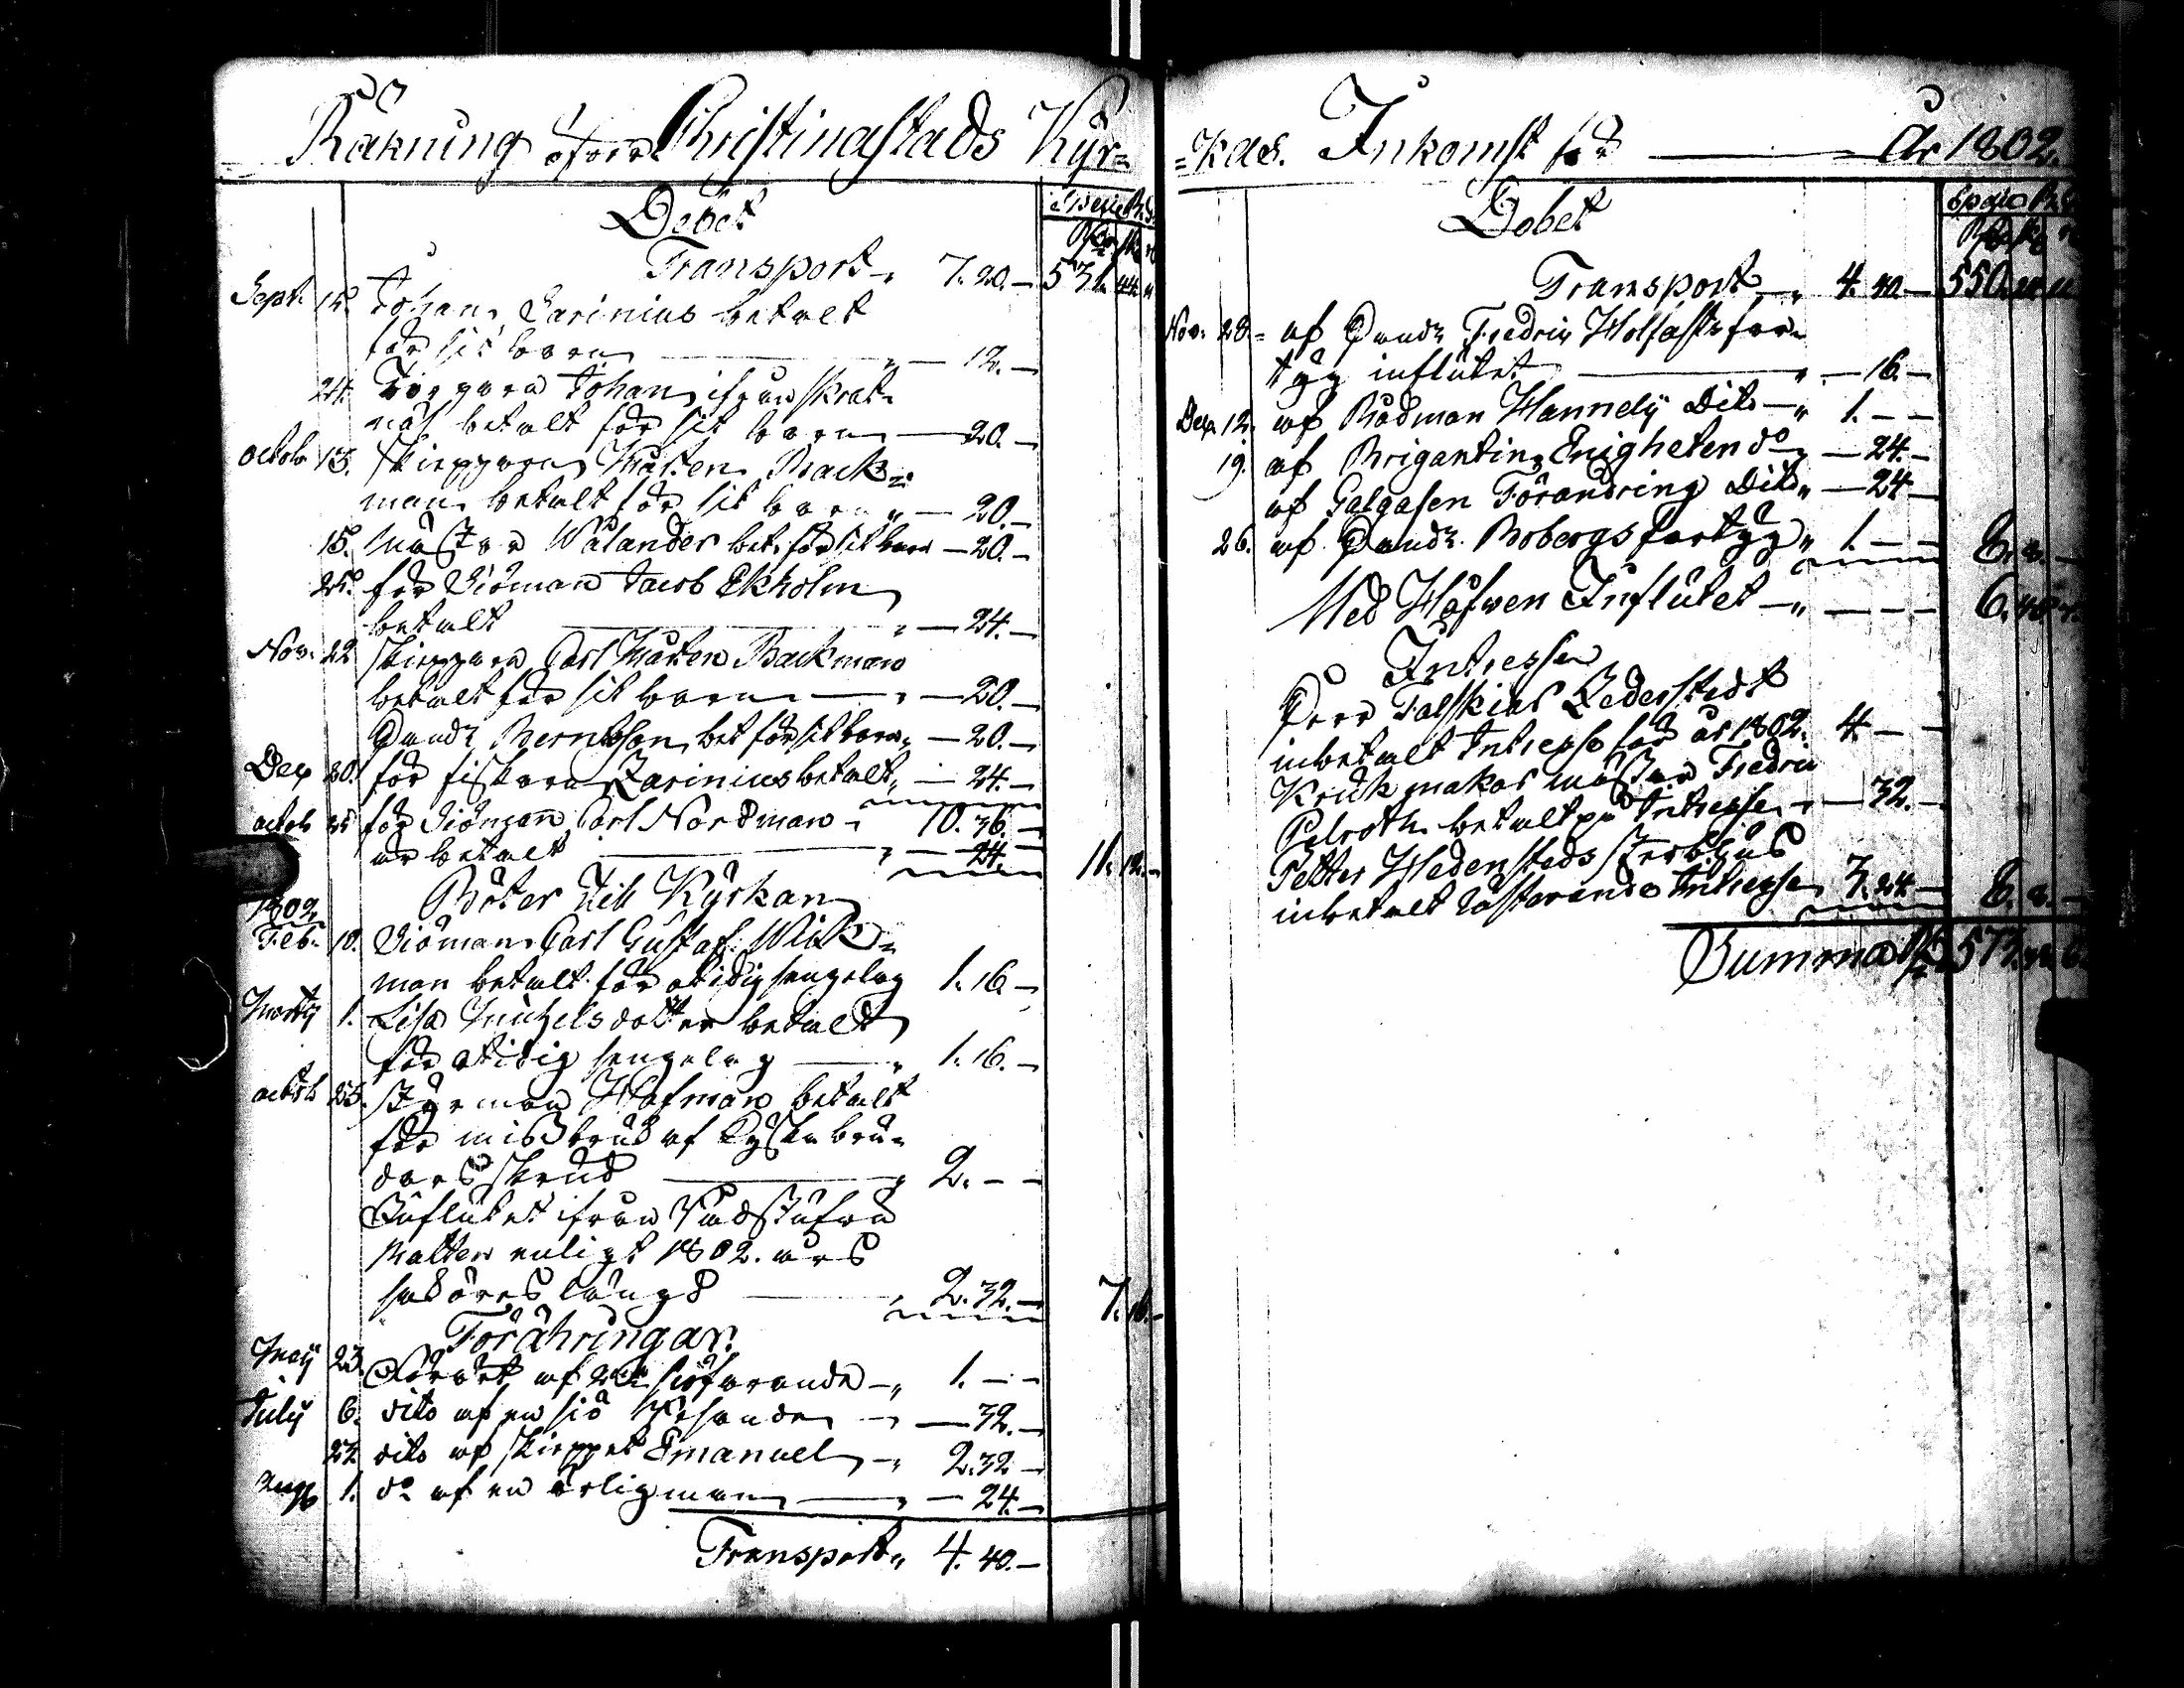 Räkning öfver Christinæstads Kyr=
Debet
Specie R.d.
Transport " 7. 20. — 531. 44. "
Sept. 15. Johan Carinius betalt
för sit barn — " — 12. —
24. Torparn Johan ifrån Skrat-
näs betalt för sit barn — 20. —
Octob. 13. Skepparn Mårten Back=
man betalt för sit barn " — 20. —
15. Mäster Wälander bet. för sit barn — 20. —
25. för Siöman Jacob Ekholm
betalt — " — 24. —
Nov. 22 Skepparn Carl Mårten Backman
betalt för sit barn — " — 20. —
Handl. Berntson bet för sit barn " — 20. —
Dec 20. för fiskaren Carinius betalt " — 24. —
Octob 25 för Siöman Carl Nordman " 10. 36. —
är betalt — " — 24. — 11. 12. —
Böter till Kyrkan
1802.
Feb. 10. Siöman Carl Gustaf Wik=
man betalt för otidig sängelag 1. 16. —
Martij 1. Lisa Michelsdotter betalt
för otidig sängelag — " 1. 16. —
Octob 25. Styrman Hofman betalt
för missbruk af Kyrko bru=
darskrud — " 2. — —
Influtet ifrån Rådstufvu
Rätten enligt 1802. års
saköres längd — " 2. 32. — 7. 16. —
Förähringar.
Maij 23. Förärt af siöfarande — " 1. — —
July 6. dito af en siö Resande — " — 32. —
23. dito af Skeppet Emanuel — " 2. 32 —
Aug 1. d:o af en ärlig man — " — 24. —
Transport " 4. 40. —
=kas. Inkomst för — År 1802.
Debet
Specie R.d.
Transport — " 4. 40. — 550.
Nov. 28. af Handl. Fredric Holmsts far-
tyg influtet — " — 16. —
Dec. 12. af Rådman Hannely Dito — " 1. — —
19. af Brigantin Enigheten d:o " — 24. —
af Galeasen Förändring Dito " — 24 —
26. af Handl. Bobergs fartyg " 1. — — 8. 8. —
Med Håfven Influtet — " — — — 6. 48
Intresse
Herr Fältskiär Zederstedt
inbetalt Intresse för år 1802. 4. — —
Krukmakar mäster Fredric
Pelroth betalt på Intresse " — 32. —
Petter Hedensteds Sterbhus
inbetalt resterande Intresse 3. 24. — 8. 8. —
Summa 573.